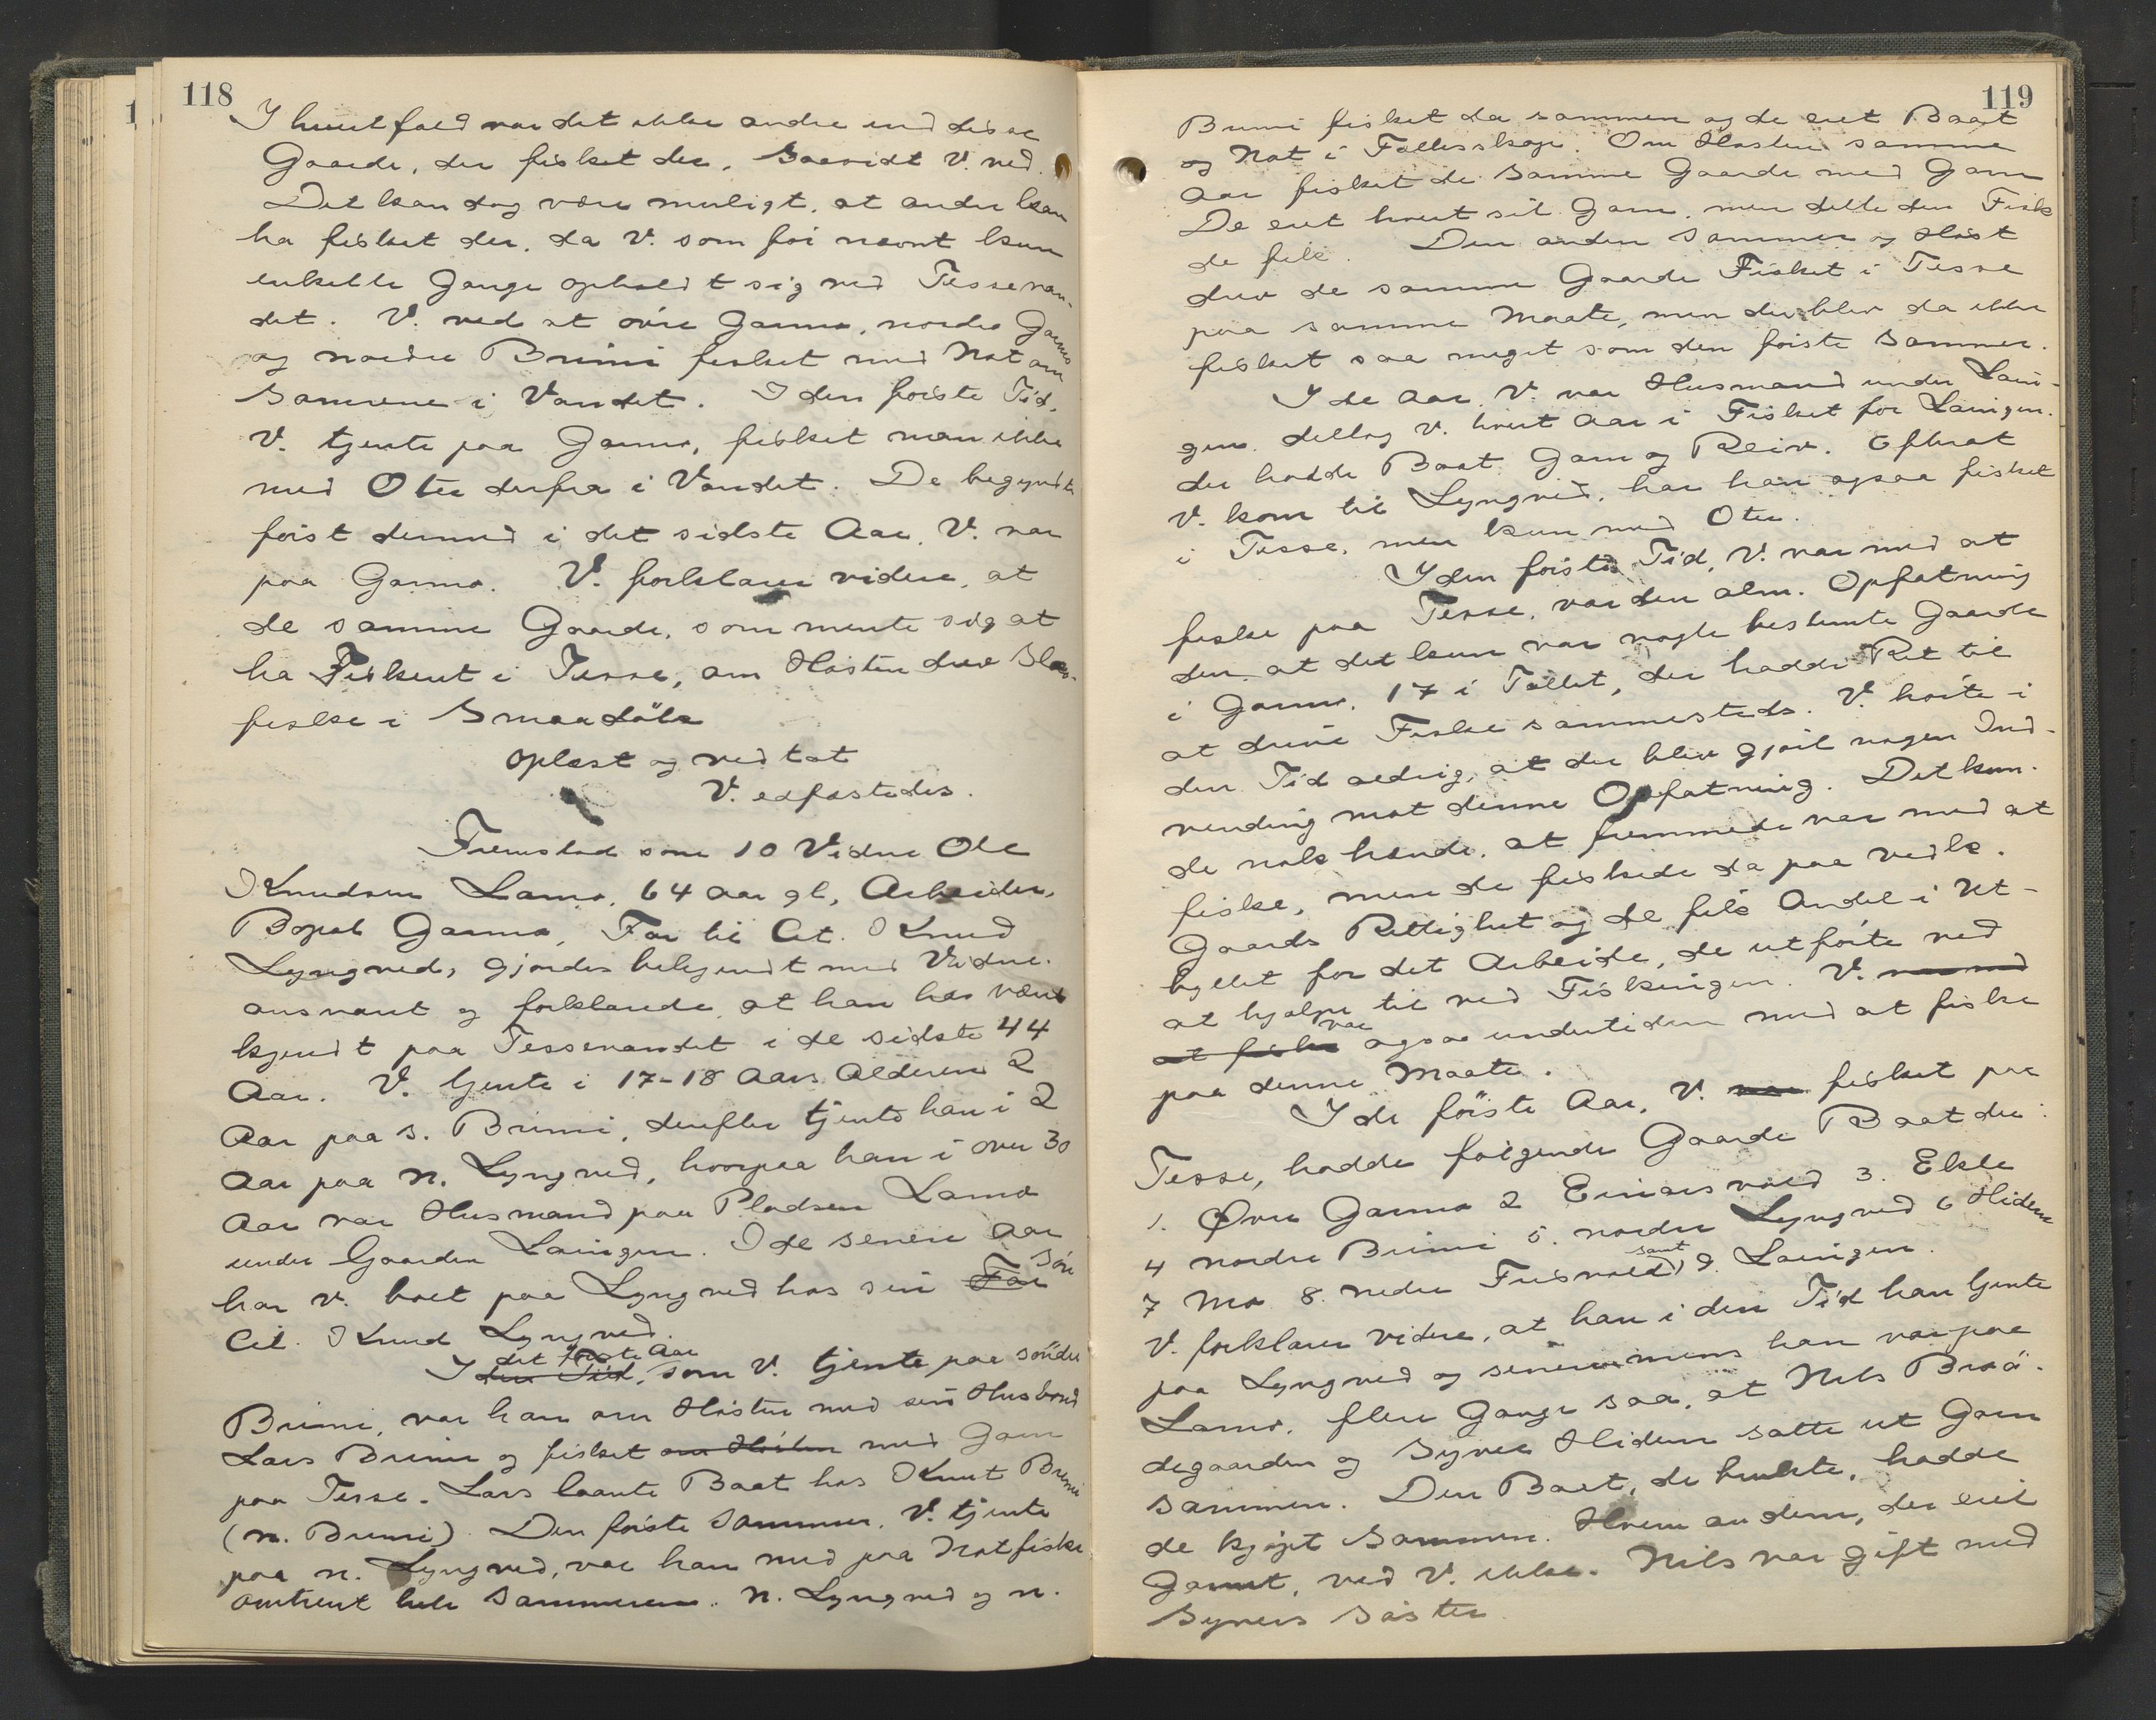 118
I hvertfald var det ikke andre end disse
Gaarde, der fisket der, saavidt V. ved.
Det kan dog være muligt, at andre kan
ha fisket der, da V. som før nævnt kun
enkelte Gange opholdt sig ved Tessevan-
det. V. ved at øvre Garmo, nordre Garmo
og nordre Brimi fisket med Not om
Somrene i Vandet. I den første Tid,
V. tjente paa Garmo, fisket man ikke
med Oter derfra i Vandet. De begyndte
først dermed i det sidste Aar, V. var
paa Garmo. V. forklarer videre, at
de samme Gaarde, som mente sig at
ha Fiskeret i Tesse, om Høsten drev
fiske i Smaadøla
Oplæst og vedtat
V. exfastedes.
Fremstod som 10 Vidne Ole
Knudsen Lamo, 64 Aar gl, Arbeider,
Bopæl Garmo, Far til Cit. Knud
Lyngved, gjordes bekjendt med Vidne-
ansvaret og forklarede, at han har været
kjendt paa Tessevandet i de sidste 44
Aar. V. tjente i 17-18 Aars Alderen 2
Aar paa s. Brimi, derefter tjente han i 2
Aar paa n. Lyngved, hvorpaa han i over 30
Aar var Husmand paa Pladsen Lamo
under Gaarden Lauigen. I de senere Aar
har V. boet paa Lyngved hos sin Far Søn
Cit. Knud Lyngved.
I den Tid det første Aar, som V. tjente paa søndre
Brimi, var han om Høsten med sin Husbond
Lars Brimi og fisket om Høsten med Garn
paa Tesse. Lars laante Baat hos Knut Brimi
(n. Brimi). Den første Sommer, V. tjente
paa n. Lyngved, var han med paa Notfiske
omtrent hele Sommeren. N. Lyngved og n.
119
Brimi fisket da sammen og de eiet Baat
og Not i Fællesskap. Om Høsten samme
Aar fisket de samme Gaarde med Garn
De eiet hvert sit Garn, men delte den Fisk
de fik. Den anden Sommer og Høst
drev de samme Gaarde Fisket i Tesse
paa samme Maate, men der blev da ikke
fisket saa meget som den første Sommer.
I de Aar, V. var Husmand under Laui-
gen deltog V. hvert Aar i Fisket for Lauigen.
der hadde Baat, Garn og Reiv. Efterat
V. kom til Lyngved, har han ogsaa fisket
i Tesse, men kun med Oter.
I den første Tid, V. var med at
fiske paa Tesse, var den alm. Opfatning
den, at det kun var nogle bestemte Gaarde
i Garmo, 17 i Tallet, der hadde Ret til
at drive Fiske sammesteds. V. hørte i
den Tid aldrig, at der blev gjort nogen Ind-
vending mot denne Opfatning. Det kun-
de nok hænde, at fremmede var med at
fiske, men de fiskede da paa vedk.
Gaards Rettighet og de fik Andel i Ut-
byttet for det Arbeide, de utførte ved
at hjælpe til ved Fiskingen. V. var med
at fiske var ogsaa undertiden med at fiske
paa denne Maate.
I de første Aar, V. var fisket paa
Tesse, hadde følgende Gaarde Baat der:
1. Øvre Garmo 2 Einarsvold 3. Ekle
4 nordre Brimi 5. nordre Lyngved 6 Hidem
7 Mo 8. nedre Frisvold, samt 9. Lauigen.
V. forklarer videre, at han i den Tid han tjente
paa Lyngved og senere mens han var paa
Lamo, flere Gange saa, at Nils Braa-
degaarden og Syver Hidem satte ut Garn
sammen. Den Baat, de brukte, hadde
de kjøpt sammen. Hvem av dem, der eiet
Garnet, ved V. ikke. Nils var gift med
Syvers Søster.